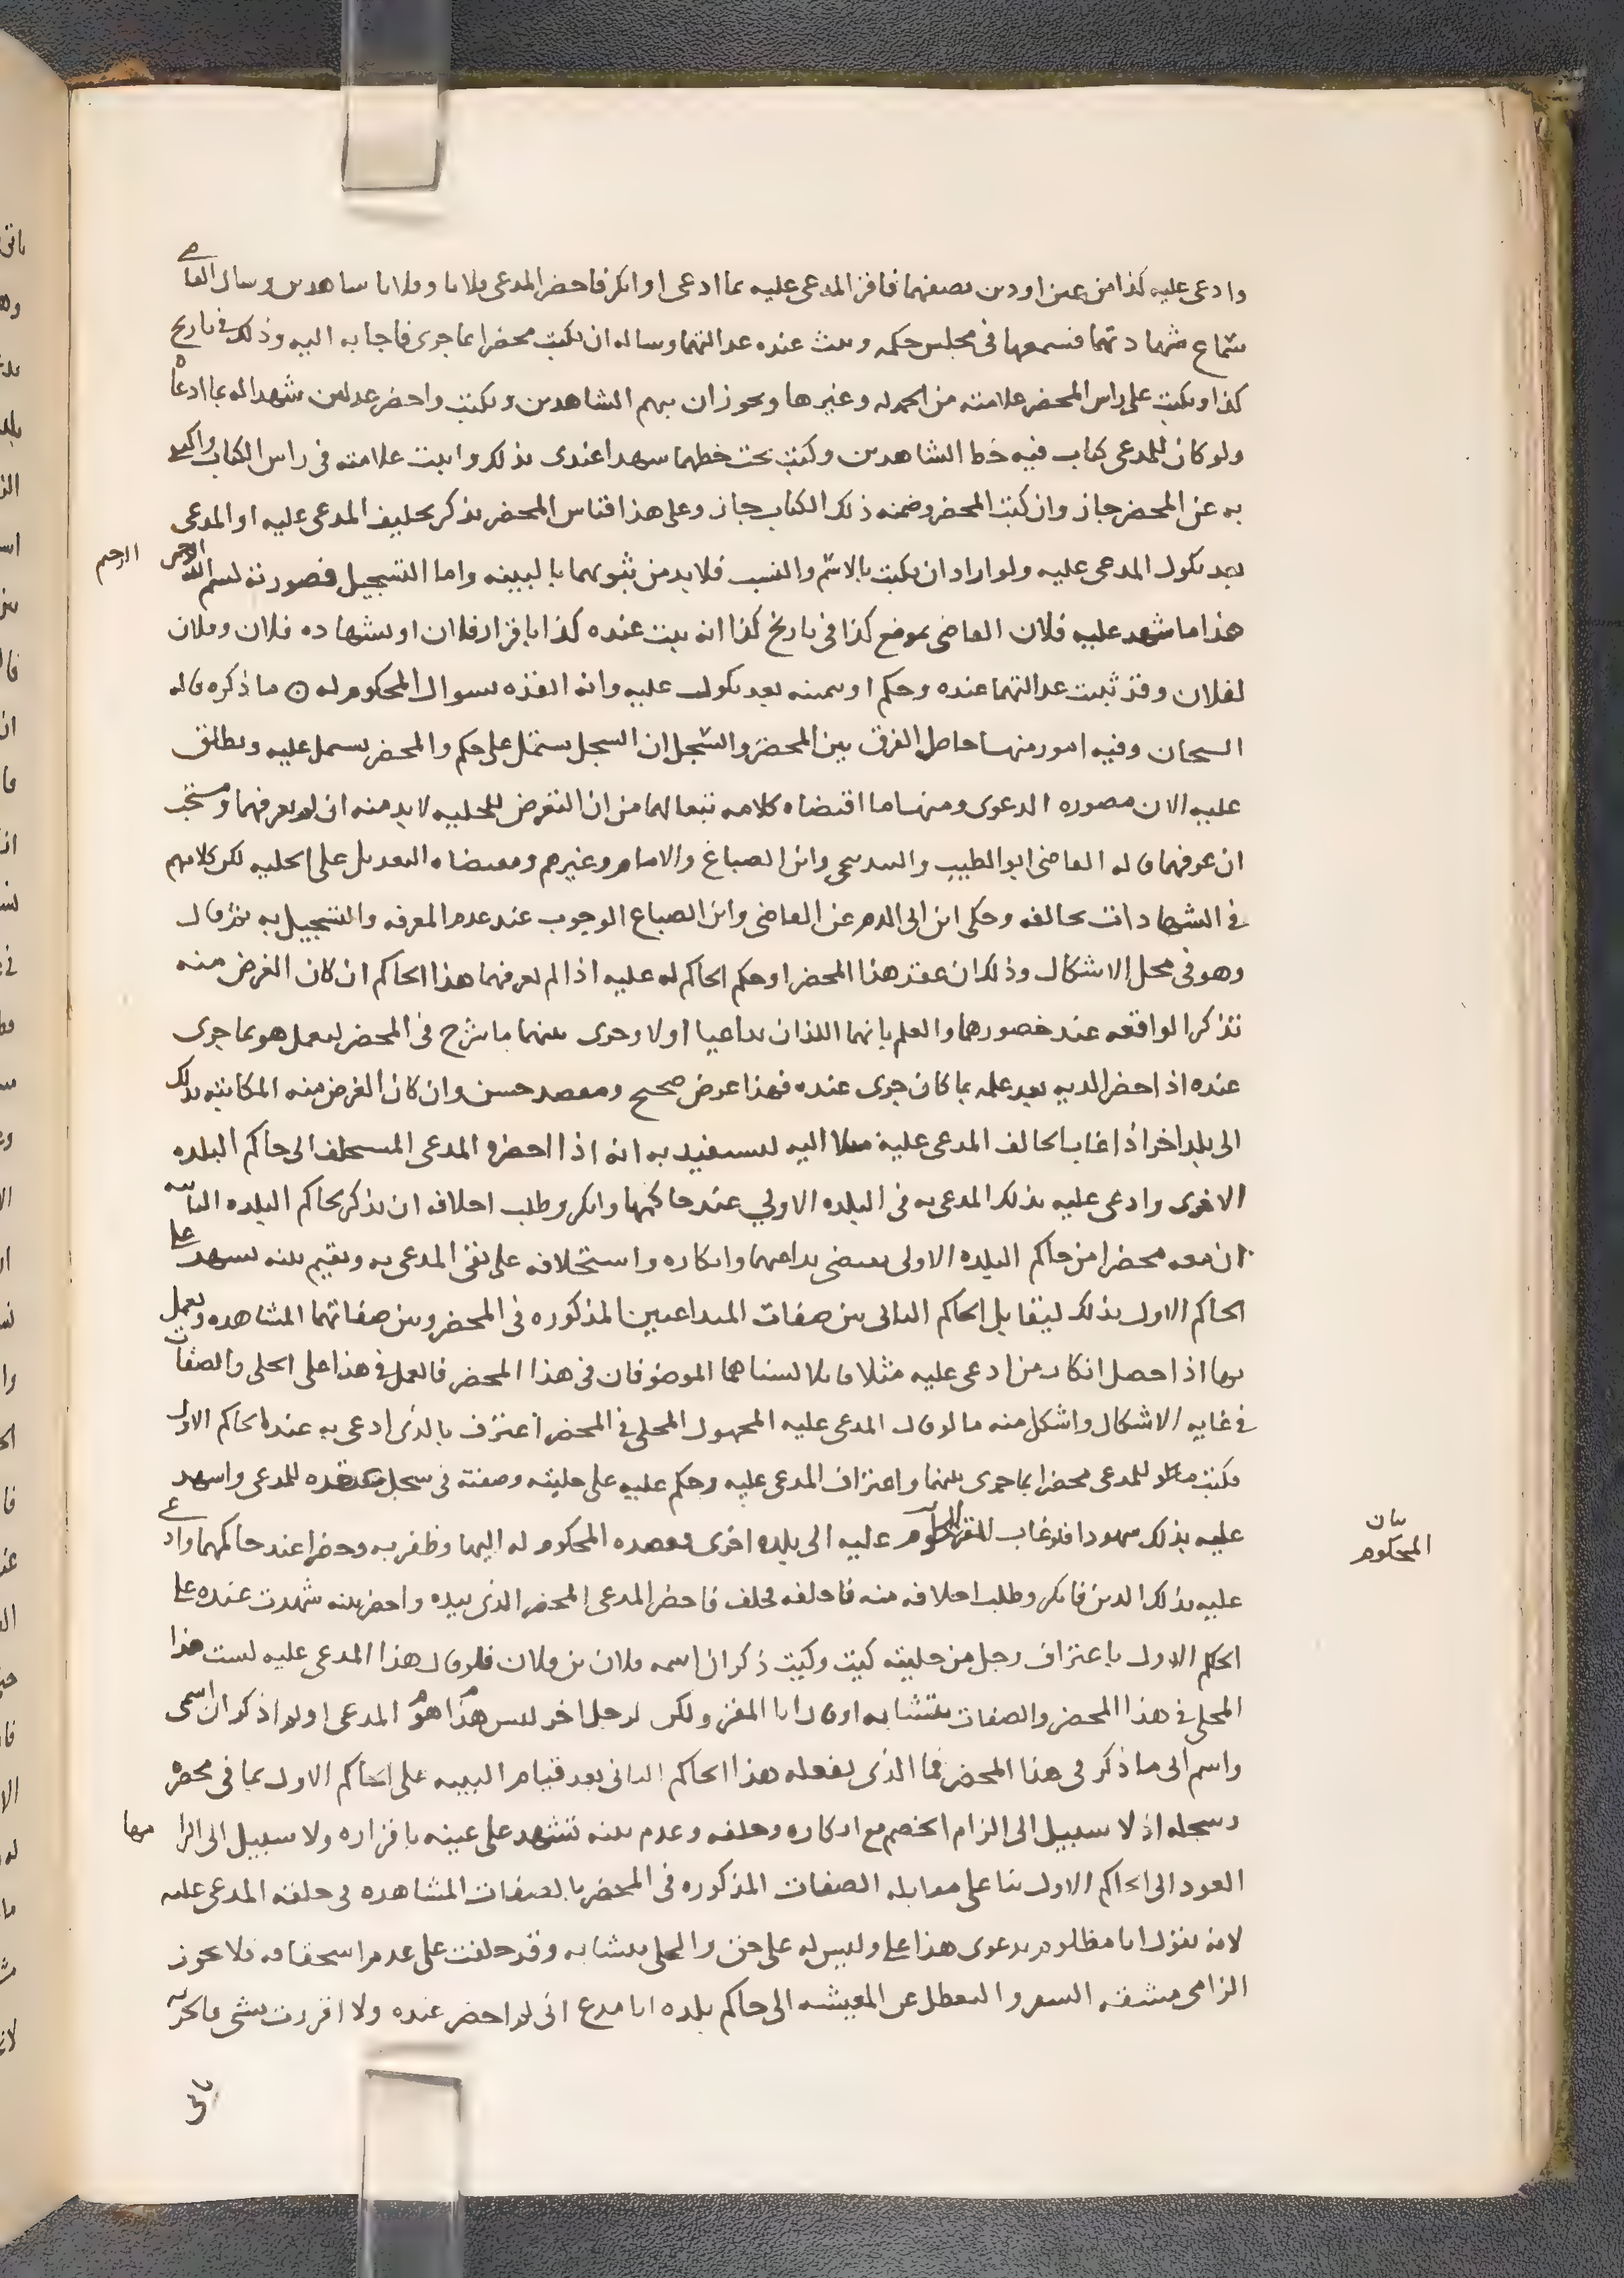 وادعى عليه كذا من عين او دين بصفتهما فاقر المدعى عليه بما ادعى او انكر فاحضر المدعى فلانا وفلانا شاهدين وسال القاضي
سماع شهادتهما فسمعها فى مجلس حكمه وثبت عنده عدالتهما وساله ان يكتب محضرا بما جرى فاجابه اليه وذلك فى تاريخ
كذا ويكتب على راس المحضر علامته من الحمدله وغيرها ويجوز ان يبهم الشاهدين ويكتب واحضر عدلين شهدا له بما ادعاه
ولو كان للمدعى كتاب فيه خط الشاهدين وكتب تحت خطهما شهدا عندى بذلك واثبت علامته فى راس الكتاب واكتفى
به عن المحضر جاز وان كتب المحضر وضمنه ذلك الكتاب جاز وعلى هذا قياس المحضر بذكر تحليف المدعى عليه او المدعى
بعد نكول المدعى عليه ولو اراد ان يكتب بالاسم والنسب فلا بد من ثبوتهما بالبينه واما التسجيل فصورته بسم الله الرحمن الرحيم
هذا ما شهد عليه فلان القاضى بموضع كذا فى تاريخ كذا انه ثبت عنده كذا باقرار فلان او بشهاده فلان وفلان
لفلان وقد ثبت عدالتهما عنده وحكم او يمينه بعد نكول عليه وانه انفذه بسوال المحكوم له ۞ ما ذكره قاله
الشيخان وفيه امور منها حاصل الفرق بين المحضر والسجل ان السجل يشتمل على حكم والمحضر يشتمل عليه ويطلق
عليه الان مصوره الدعوى ومنها ما اقتضاه كلامه تبعا لهما من ان التعرض للحليه لا بد منه ان لم يعرفهما ومستحب
ان عرفهما قاله القاضى ابو الطيب والبندنيجى وابن الصباغ والامام وغيرهم ومقتضاه التعديل على الحليه لكن كلامهم
فى الشهادات يخالفه وحكى ابن ابى الدم عن القاضى وابن الصباغ الوجوب عند عدم المعرفه والتسجيل به ثم قال
وهو فى محل الاشكال وذلك ان عقد هذا المحضر او حكم الحاكم له عليه اذا لم يعرفهما هذا الحاكم ان كان الغرض منه
تذكر الواقعه عند حضورهما والعلم بانهما اللذان تداعيا اولا وجرى بينهما ما شرح فى المحضر ليعمل هو بما جرى
عنده اذا حضر لديه بعد علمه بما كان جرى عنده فهذا غرض صحيح ومقصد حسن وان كان الغرض منه المكاتبه بذلك
الى بلد اخر اذا غاب الحالف المدعى عليه مثلا اليه ليستفيد به انه اذا احضره المدعى المستحلف الى حاكم البلده
الاخرى وادعى عليه بذلك المدعى به فى البلده الاولى عند حاكمها وانكر وطلب احلافه ان يذكر لحاكم البلده الثانيه
ان معه محضرا من حاكم البلده الاولى يقتضى تداعيهما وانكاره واستحلافه على نفى المدعى به ويقيم بينه تشهد على
الحاكم الاول بذلك ليقابل الحاكم الثانى بين صفات المتداعيين المذكوره فى المحضر وبين صفاتهما المشاهده ويعمل
بها اذا حصل انكار من ادعى عليه مثلا قائلا لسنا هما الموصوفان فى هذا المحضر فالعمل فى هذا على الحلى والصفات
فى غايه الاشكال واشكل منه ما لو قال المدعى عليه المجهول المحلى فى المحضر اعترف بالذى ادعى به عنده الحاكم الاول
فكتب للمدعى محضرا بما جرى بينهما واعتراف المدعى عليه وحكم عليه على حليته وصفته فى سجل للمدعى واشهد
عليه بذلك شهودا فلو غاب المقر المحكوم عليه الى بلده اخرى فقصده المحكوم له اليها وظفر به وحضرا عند حاكمهما وادعى
عليه بذلك الدين فانكر وطلب احلافه منه فاحلفه فحلف فاحضر المدعى المحضر الذى بيده واحضر بينه شهدت عنده على
الحكم الاول باعتراف رجل من حليته كيت وكيت ذكر ان اسمه فلان بن فلان فلو قال هذا المدعى عليه لست هذا
المحلى فى هذا المحضر والصفات تتشابه او قال انا المقر ولكن لرجل اخر ليس هذا هو المدعى او لم اذكر ان اسمى
واسم ابى ما ذكر فى هذا المحضر فما الذى يفعله هذا الحاكم الثانى بعد قيام البينه على الحاكم الاول بما فى محضره
وسجله اذ لا سبيل الى الزام الخصم مع انكاره وحلفه وعدم بينه تشهد على عينه باقراره ولا سبيل الى الزامهما
العود الى الحاكم الاول بنا على مقابله الصفات المذكوره فى المحضر بالصفات المشاهده فى حلفه المدعى عليه
لانه يقول انا مظلوم بدعوى هذا على وليس له على حق والحلى تتشابه وقد حلفت على عدم استحقاقه فلا يجوز
الزامى مشقه السفر والتعطل عن المعيشه الى حاكم بلده انا مدع انى لم احضر عنده ولا اقررت بشى
بيان
المحكوم